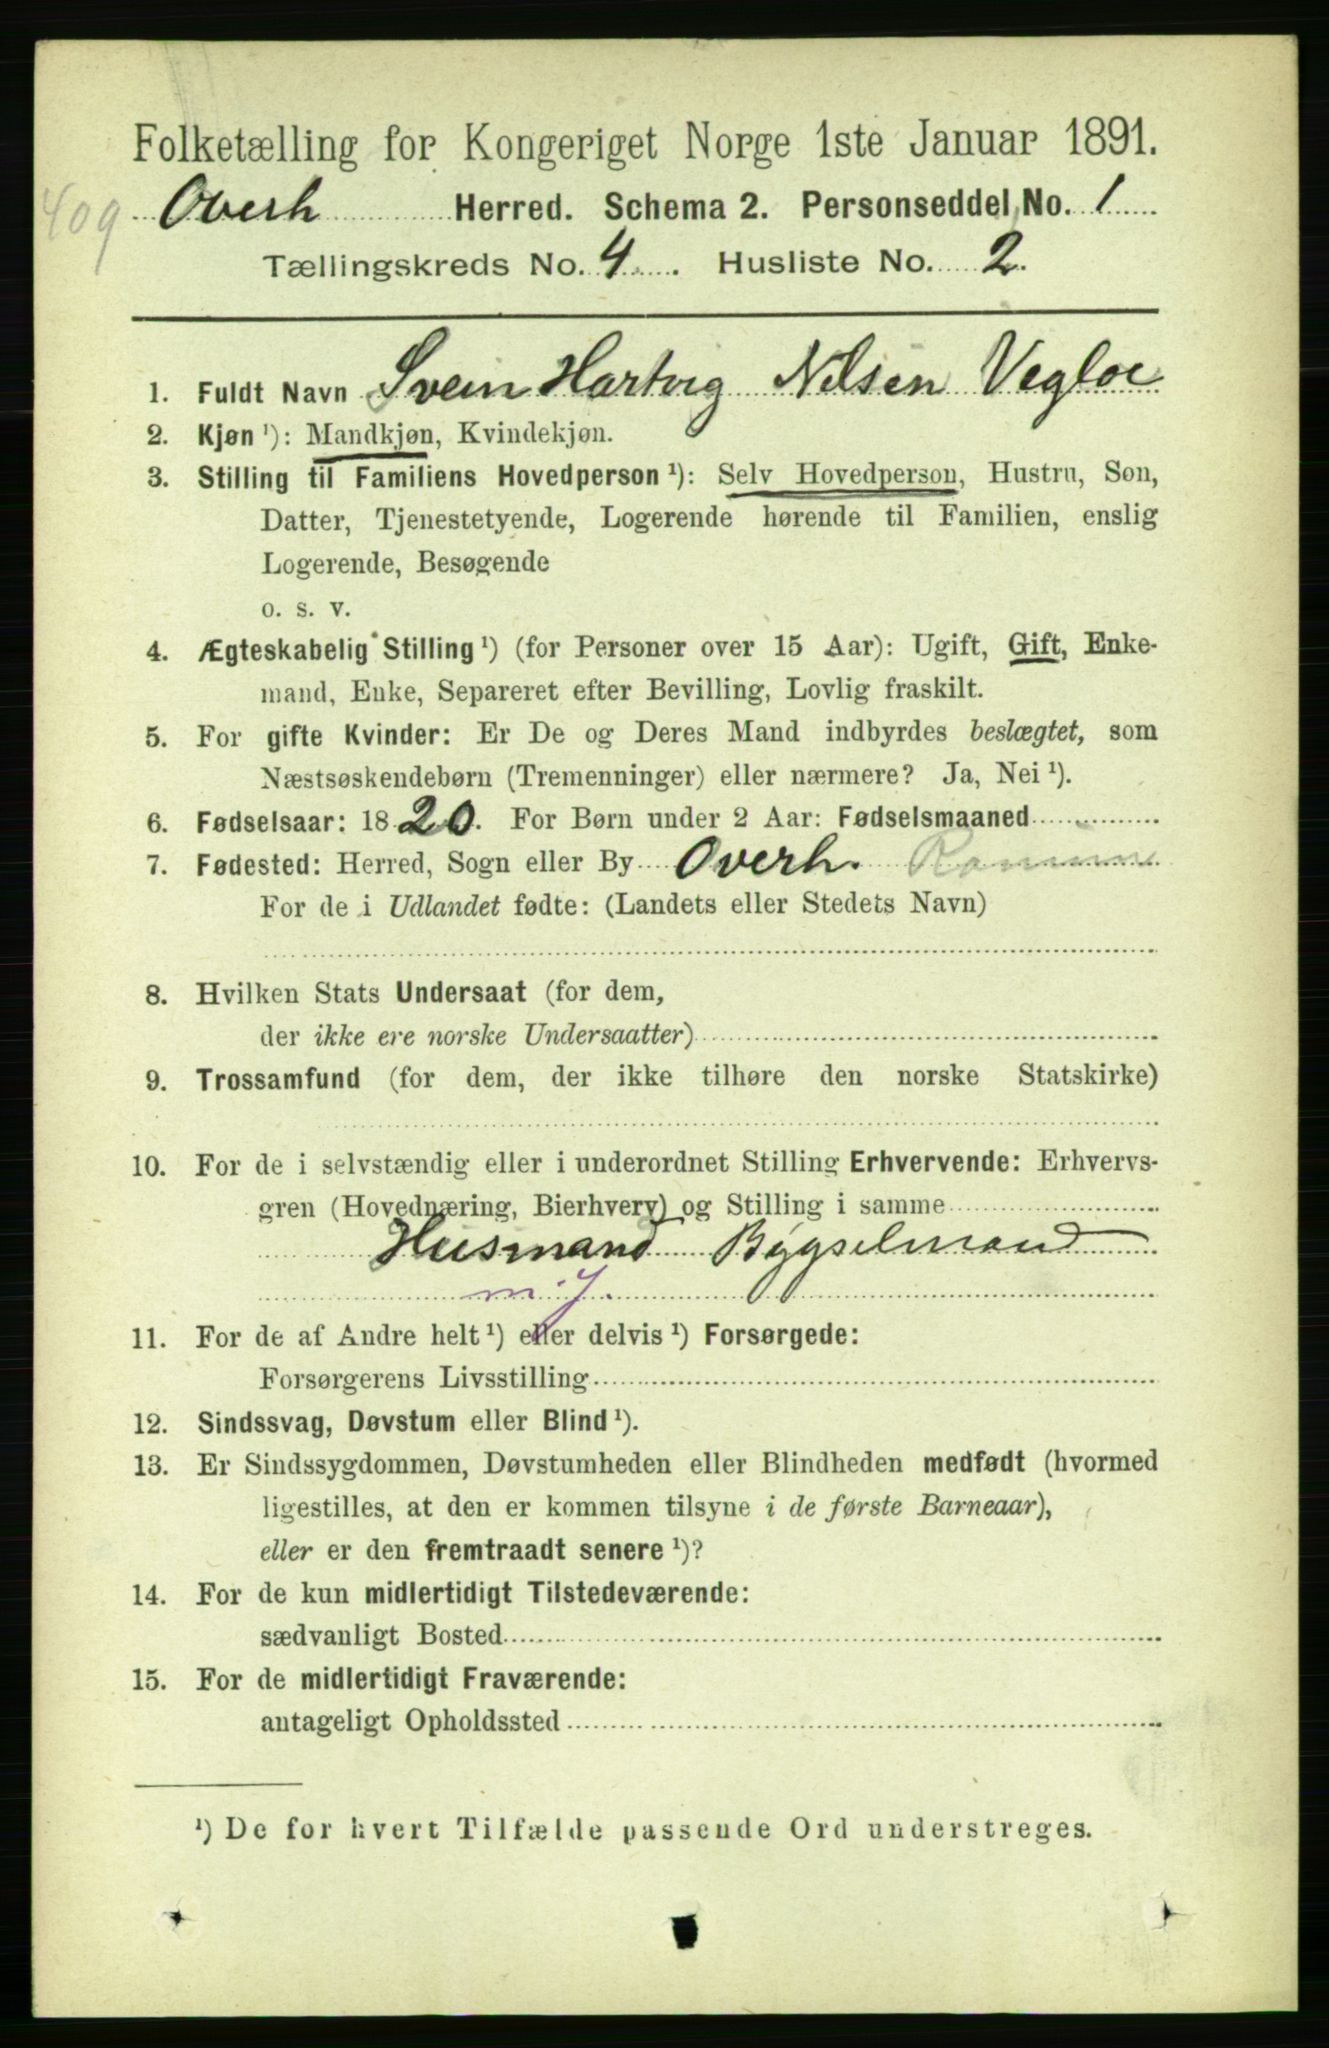 Folketælling for Kongeriget Norge 1ste Januar 1891.
409 Overh Herred. Schema 2. Personseddel No. 1
Tællingskreds No. 4. Husliste No. 2.
1. Fuldt Navn Svein Hartvig Nilsen Vegloe
2. Kjøn ¹): Mandkjøn, Kvindekjøn.
3. Stilling til Familiens Hovedperson ¹): Selv Hovedperson, Hustru, Søn,
Datter, Tjenestetyende, Logerende hørende til Familien, enslig
Logerende, Besøgende
o. s. v.
4. Ægteskabelig Stilling ¹) (for Personer over 15 Aar): Ugift, Gift, Enke-
mand, Enke, Separeret efter Bevilling, Lovlig fraskilt.
5. For gifte Kvinder: Er De og Deres Mand indbyrdes beslægtet, som
Næstsøskendebørn (Tremenninger) eller nærmere? Ja, Nei ¹).
6. Fødselsaar: 1820. For Børn under 2 Aar: Fødselsmaaned
7. Fødested: Herred, Sogn eller By Overh.
For de i Udlandet fødte: (Landets eller Stedets Navn)
8. Hvilken Stats Undersaat (for dem,
der ikke ere norske Undersaatter)
9. Trossamfund (for dem, der ikke tilhøre den norske Statskirke)
10. For de i selvstændig eller i underordnet Stilling Erhvervende: Erhvervs-
gren (Hovednæring, Bierhverv) og Stilling i samme
Husmand Bygselmand
m. J.
11. For de af Andre helt ¹) eller delvis ¹) Forsørgede:
Forsørgerens Livsstilling
12. Sindssvag, Døvstum eller Blind ¹).
13. Er Sindssygdommen, Døvstumheden eller Blindheden medfødt (hvormed
ligestilles, at den er kommen tilsyne i de første Barneaar),
eller er den fremtraadt senere ¹)?
14. For de kun midlertidigt Tilstedeværende:
sædvanligt Bosted
15. For de midlertidigt Fraværende:
antageligt Opholdssted
¹) De for hvert Tilfælde passende Ord understreges.